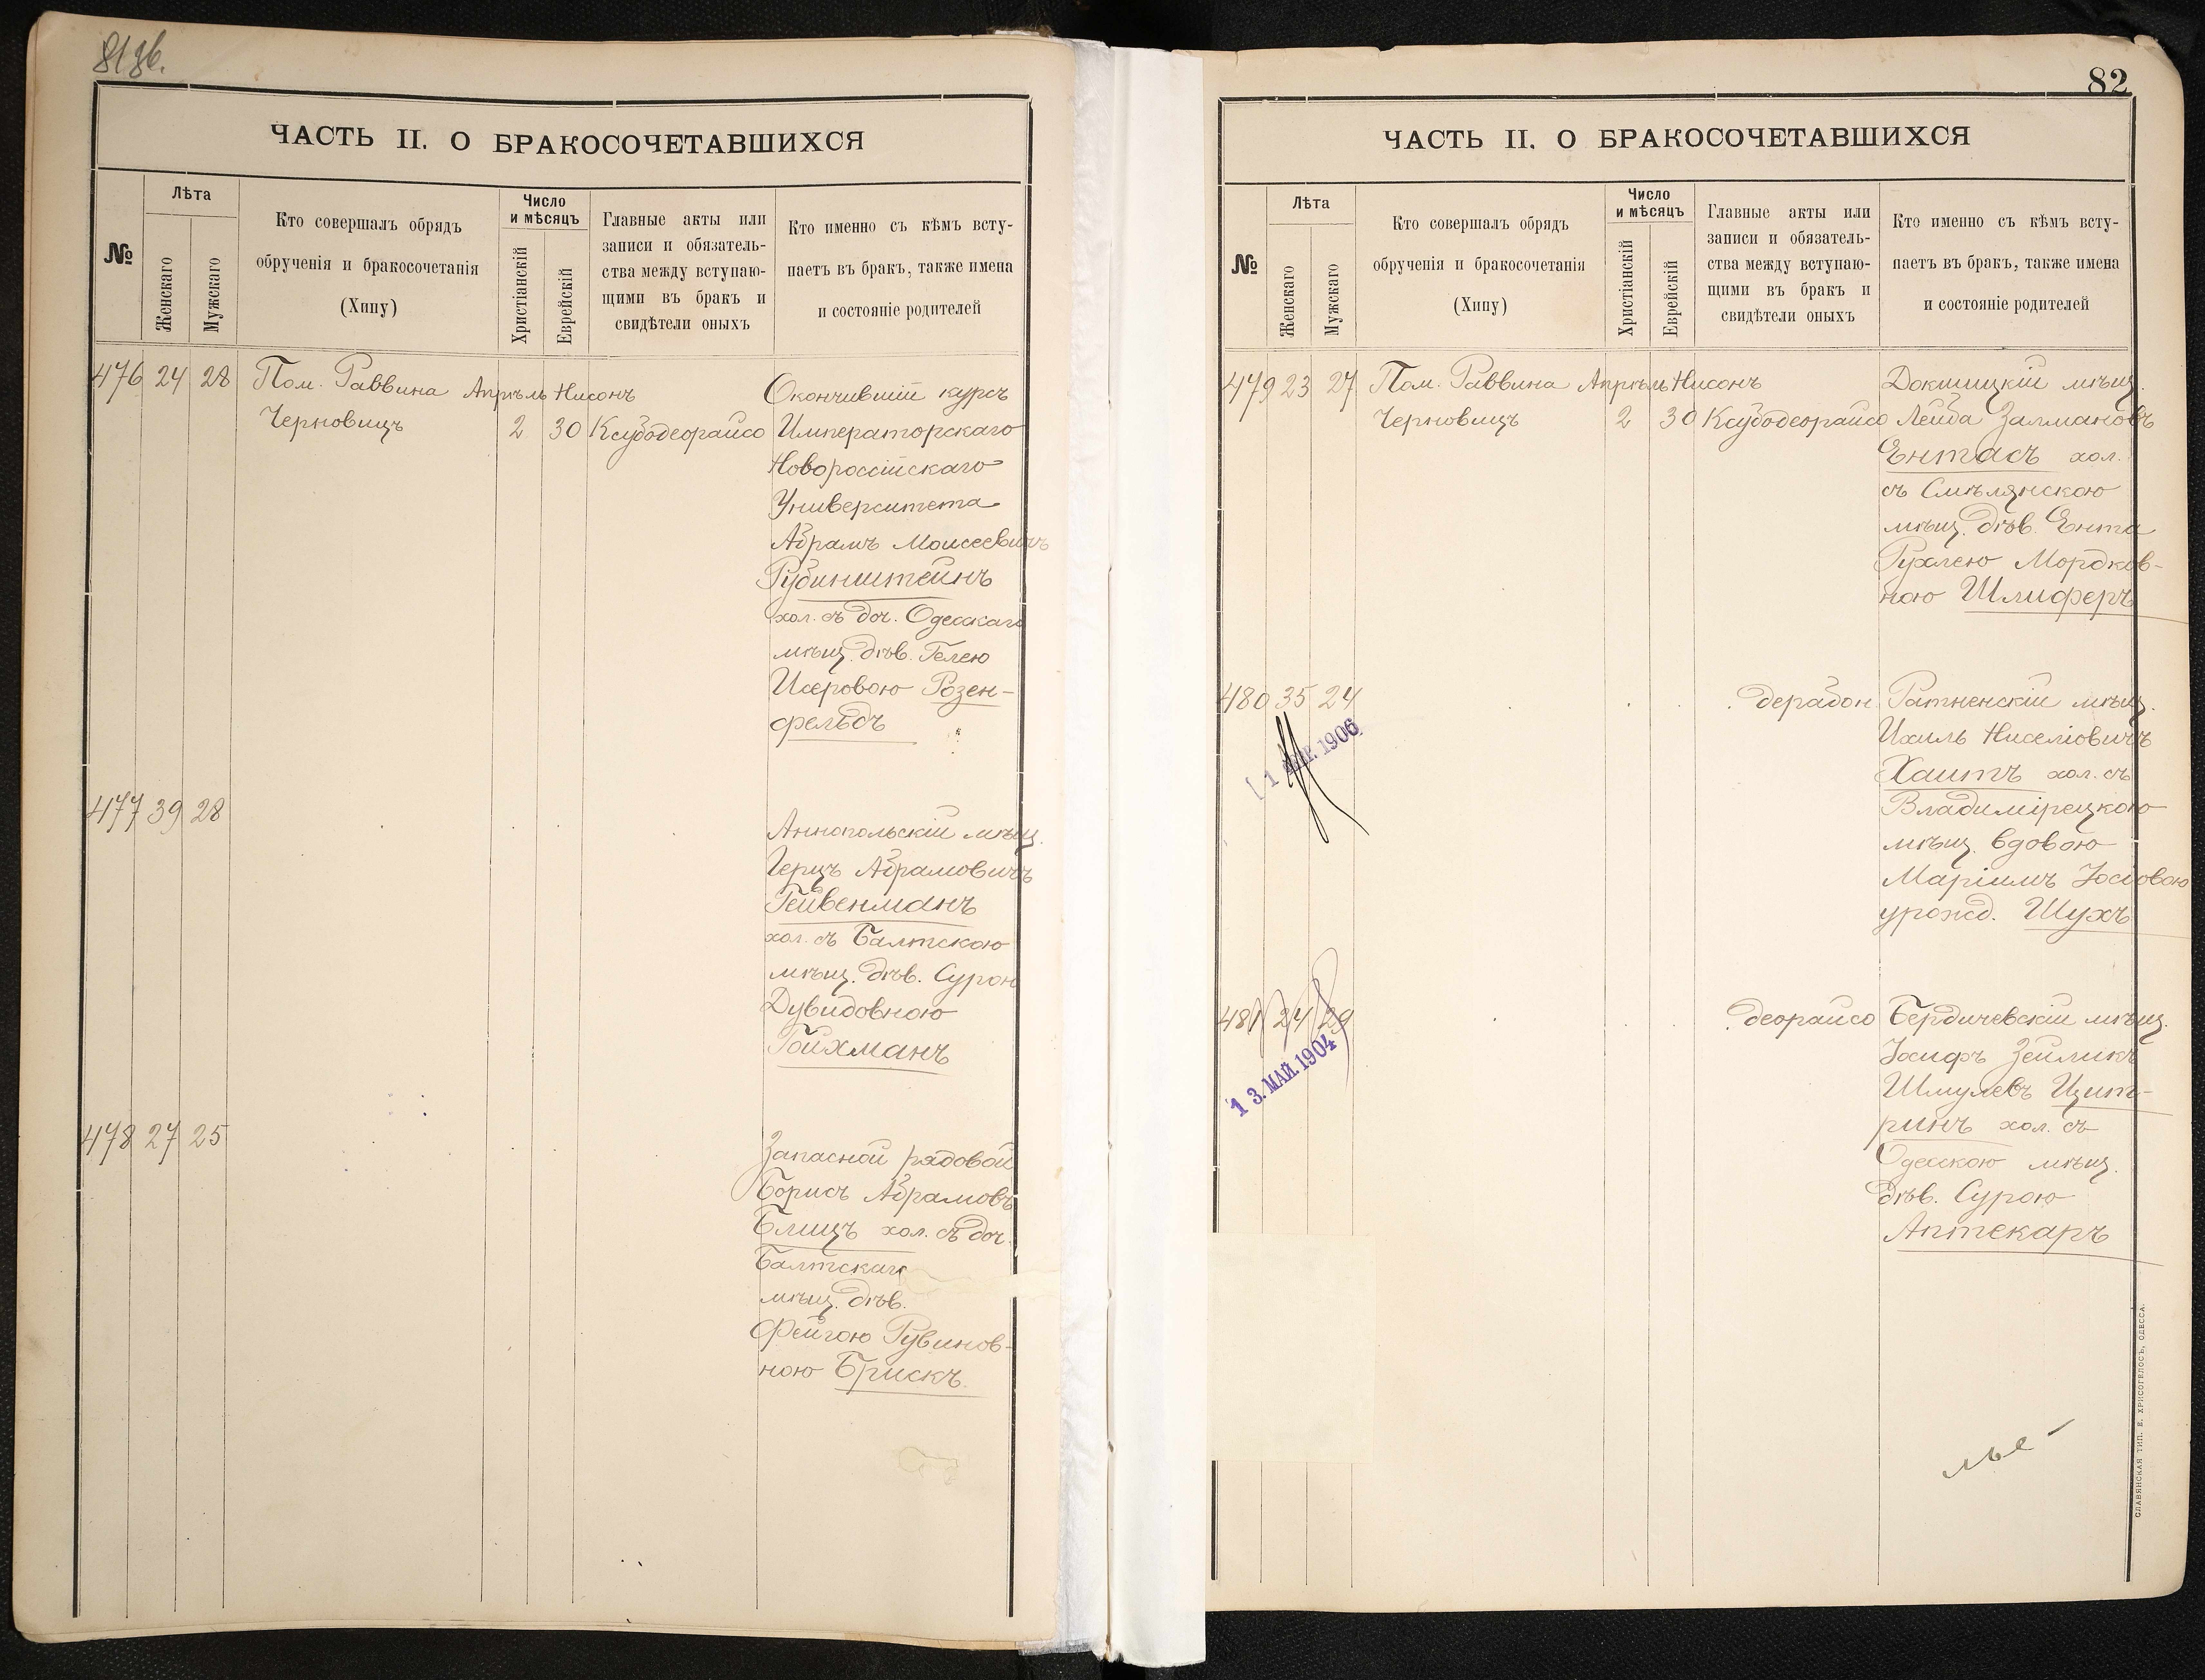 81 об.
ЧАСТЬ II. О БРАКОСОЧЕТАВШИХСЯ
№
Лѣта
Женскаго
Мужскаго
Кто совершалъ обрядъ
обрученія и бракосочетанія
(Хипу)
Число
и мѣсяцъ
Христіанскій
Еврейскій
Главные акты или
записи и обязатель-
ства между вступаю-
щими въ бракъ и
свидѣтели оныхъ
Кто именно съ кѣмъ всту-
паетъ въ бракъ, также имена
и состояніе родителей
476 24 28 Пом. Раввина Апрѣль Нисонъ
Черновицъ 2 30 Ксубодеорайсо
Окончившій курсъ
Императорскаго
Новороссійскаго
Университета
Абрамъ Моисеевичъ
Рубинштейнъ
хол. съ доч. Одесскаго
мѣщ. дѣв. Гелею
Исеровою Розен-
фельдъ
477 39 28
Аннопольскій мѣщ.
Герцъ Абрамовичъ
Гейвенманъ
хол. съ Балтскою
мѣщ. дѣв. Сурою
Дувидовною
Гойхманъ
478 27 25
Запасной рядовой
Борисъ Абрамовъ
Блицъ хол. съ доч.
Балтскаго
мѣщ. дѣв.
Фейгою Рувинов-
ною Брискъ.
82
ЧАСТЬ II. О БРАКОСОЧЕТАВШИХСЯ
№
Лѣта
Женскаго
Мужскаго
Кто совершалъ обрядъ
обрученія и бракосочетанія
(Хипу)
Число
и мѣсяцъ
Христіанскій
Еврейскій
Главные акты или
записи и обязатель-
ства между вступаю-
щими въ бракъ и
свидѣтели оныхъ
Кто именно съ кѣмъ всту-
паетъ въ бракъ, также имена
и состояніе родителей
479 23 27 Пом. Раввина Апрѣль Нисонъ
Черновицъ 2 30 Ксубодеорайсо
Докшицкій мѣщ.
Лейба Залмановъ
Ентасъ хол.
съ Смѣлянскою
мѣщ. дѣв. Ента
Рухлею Мордков-
ною Шлиферъ
480 35 24
1906
дерабон
Ратненскій мѣщ.
Ихиль Ниселіовичъ
Хаитъ хол. съ
Владимірецкою
мѣщ. вдовою
Маріимъ Іосіовою
урожд. Шухъ
481 24 29
13. МАЙ. 1904
деорайсо
Бердичевскій мѣщ.
Іосифъ Зейликъ
Шмулевъ Цит-
ринъ хол. съ
Одесскою мѣщ.
дѣв. Сурою
Аптекаръ
СЛАВЯНСКАЯ ТИП. Е. ХРИСОГЕЛОСЪ, ОДЕССА.